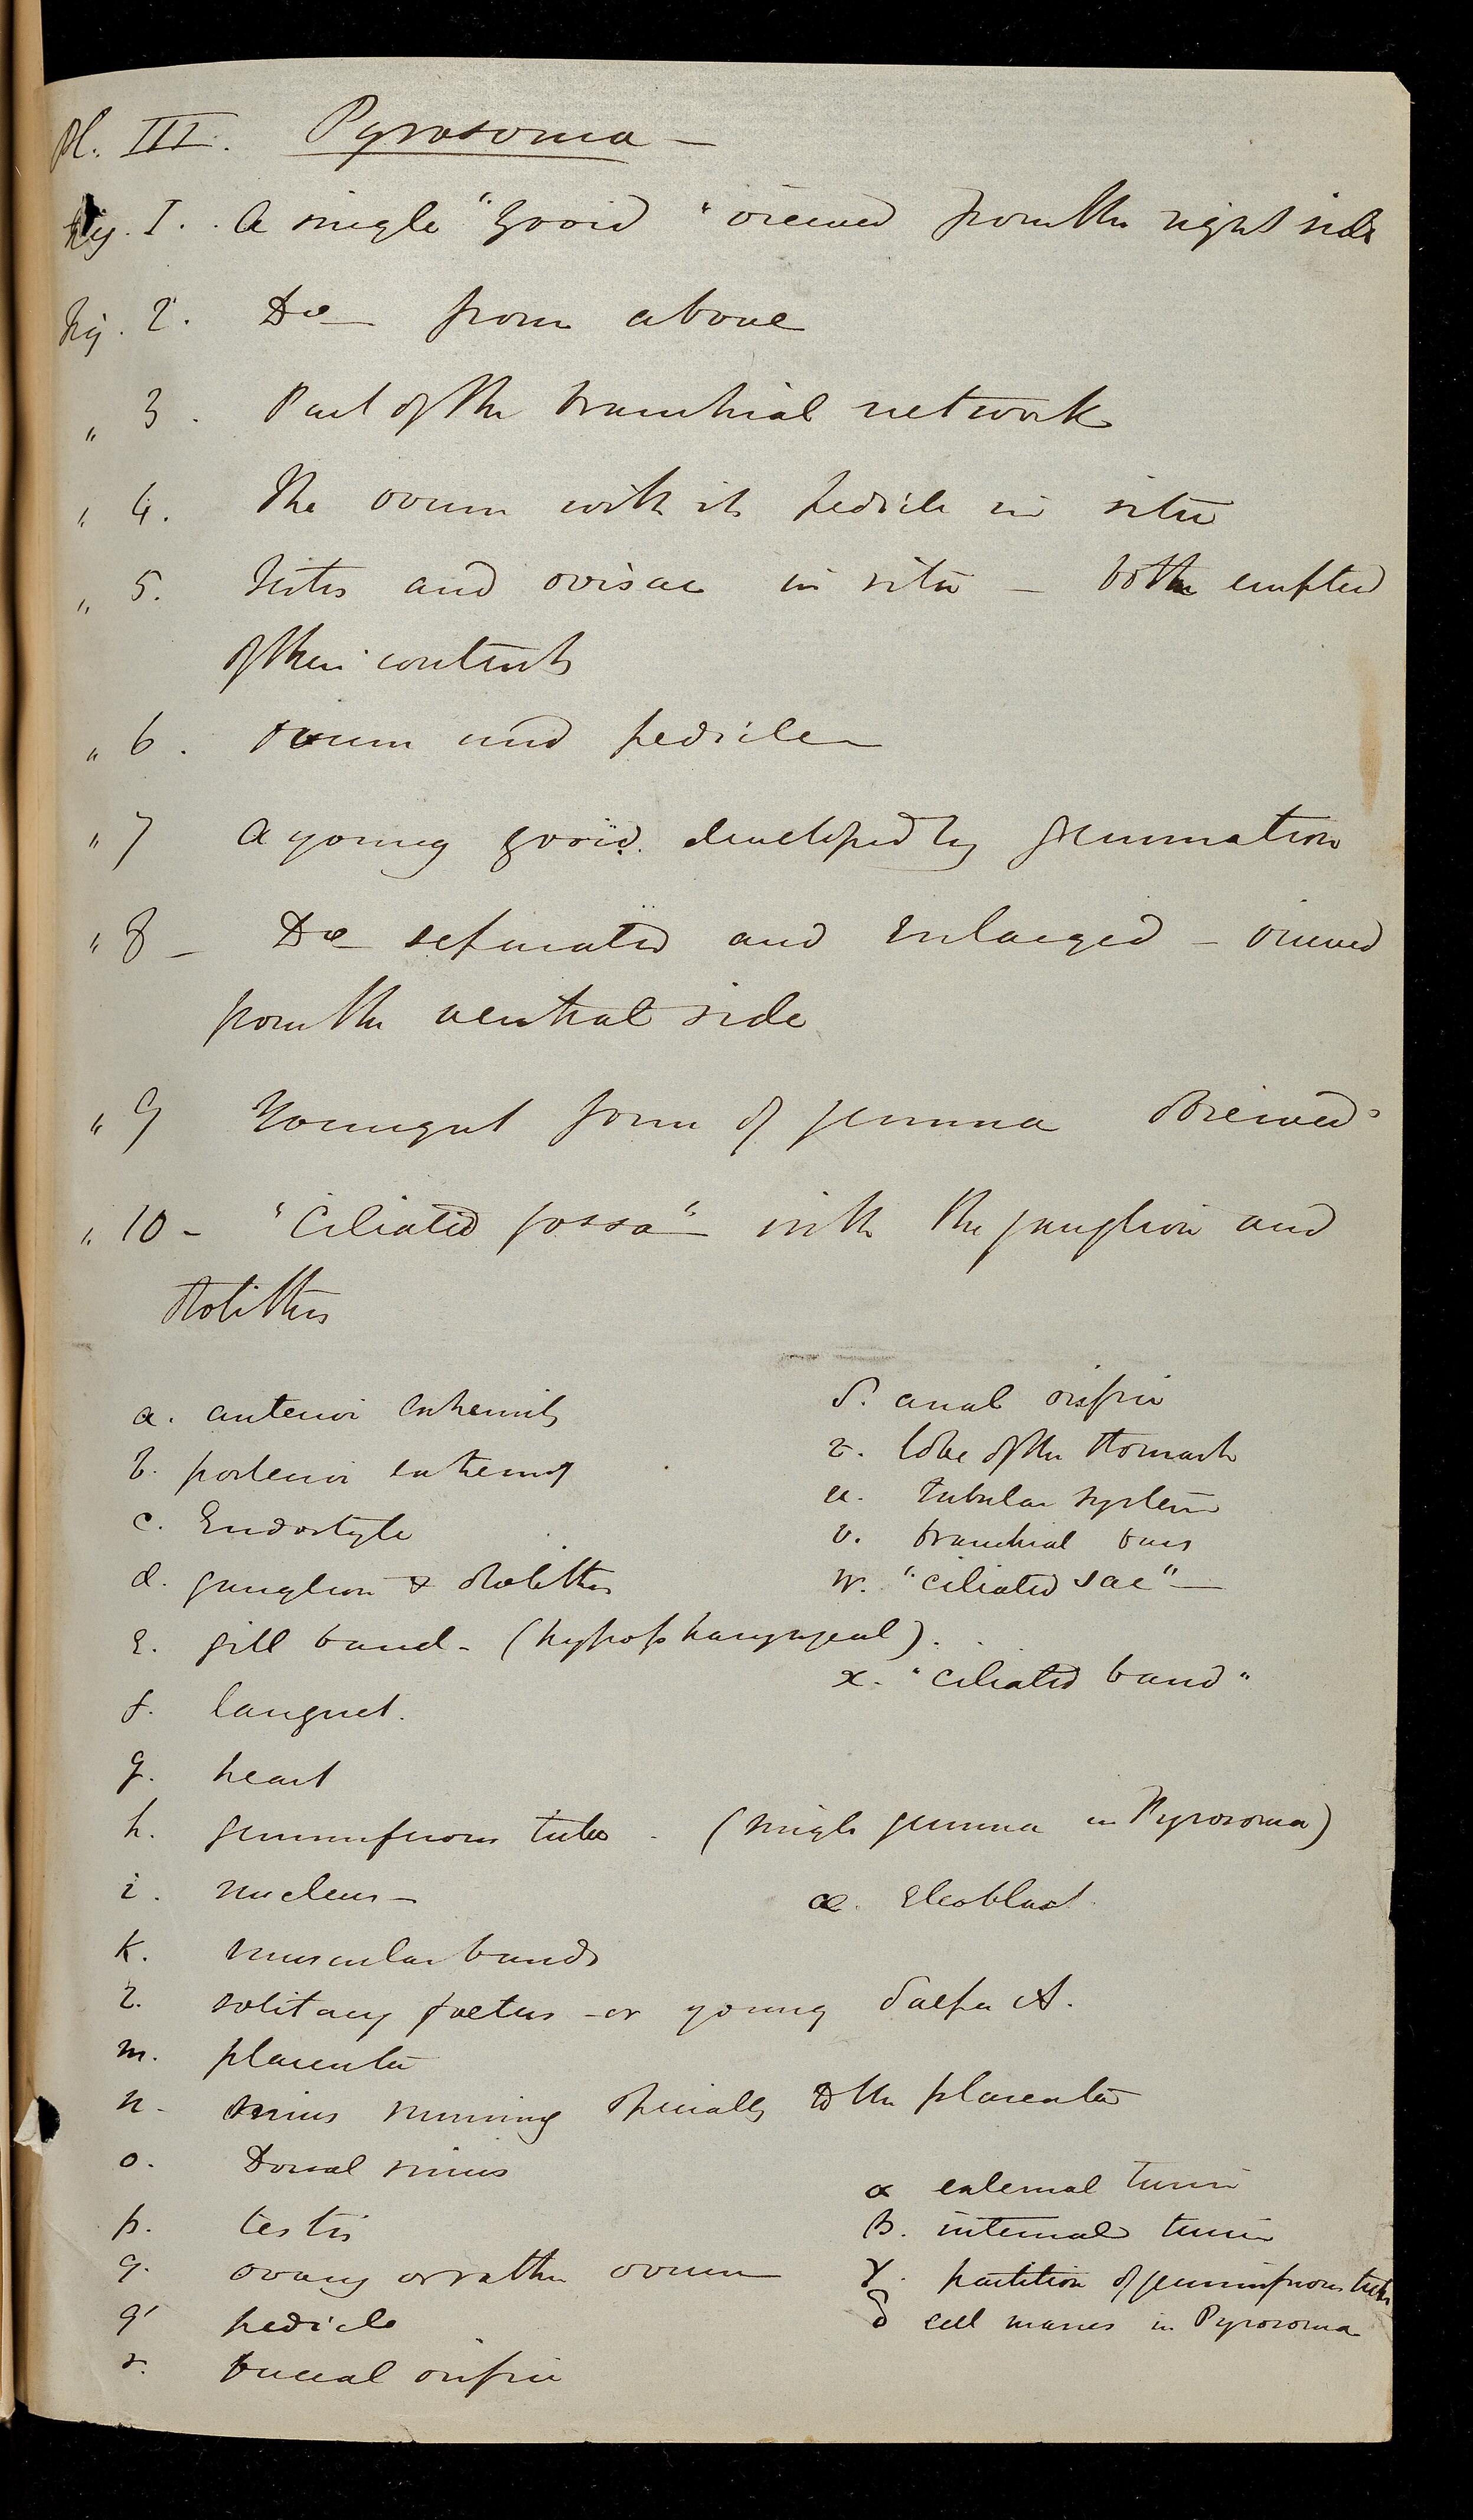 Pl. III. Pyrosoma —
Fig. I. A single "zooid" viewed from the right side
Fig. 2. Do — from above
" 3. Part of the branchial network
" 4. The ovum with its pedicle in situ
" 5. Testis and ovisac in situ — both emptied
of their contents
" 6. Ovum and pedicle —
" 7 A young zooid developed by gemmation
" 8 — Do separated and enlarged — viewed
from the ventral side
" 9 Youngest form of gemma observed
" 10 — "Ciliated fossa" with the ganglion and
otolithes
a. anterior extremity
b. posterior extremity
c. Endostyle
d. ganglion & otolithes
e. gill band - (hypopharyngeal).
f. languet.
g. heart
h. gemmiferous tube - (single gemma in Pyrosoma)
i. nucleus —
k. muscular bands
l. solitary foetus - or young Salpa A.
m. placenta
n. sinus running specially to the placenta
o. Dorsal sinus
p. testis
q. ovary or rather ovum —
q' pedicle
r. buccal orifice
s. anal orifice
t. lobe of the stomach
u. tubular system
v. branchial bars
w. "ciliated sac" —
x. "ciliated band"
æ. Eleoblast
α external tunic
β. internal tunic
γ. partition of gemmiferous tube
δ cell masses in Pyrosoma